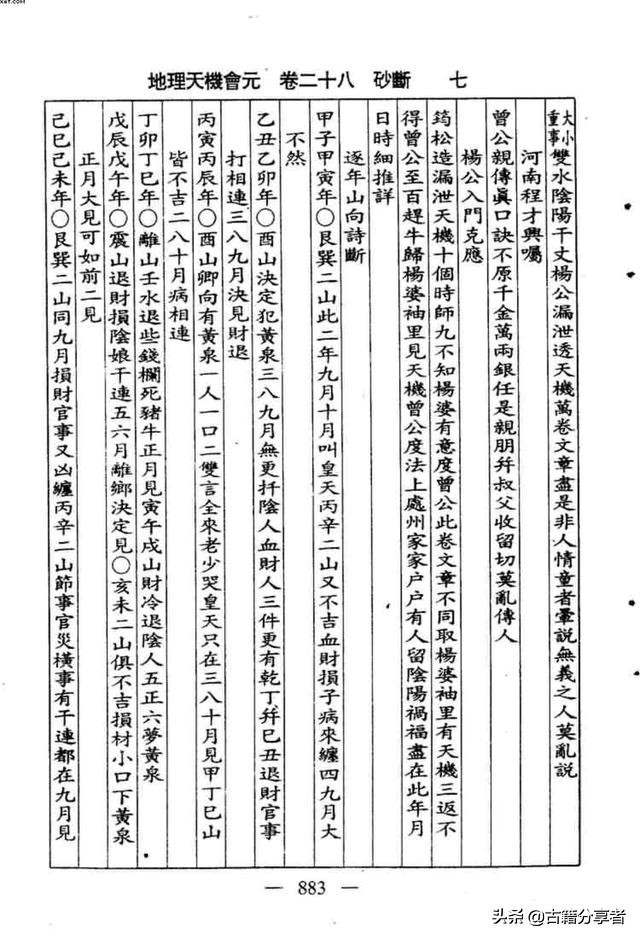 xet.com
地理天機會元　卷二十八　砂斷　　七
大小重事雙水陰陽千丈楊公漏泄透天機萬卷文章盡是非人情童者暈說無義之人莫亂說
河南程才興囑
曾公親傳眞口訣不原千金萬兩銀任是親朋幷叔父收留切莫亂傳人
楊公入門克應
筠松造漏泄天機十個時師九不知楊婆有意度曾公此卷文章不同取楊婆袖里有天機三返不
得曾公至百趕牛歸楊婆袖里見天機曾公度法上處州家家户户有人留陰陽禍福盡在此年月
日時細推詳
逐年山向詩斷
甲子甲寅年〇艮巽二山此二年九月十月叫皇天丙辛二山又不吉血財損子病來纏四九月大
不然
乙丑乙卯年〇酉山決定犯黃泉三八九月無更扦陰人血財人三件更有乾丁幷巳丑退財官事
打相連三八九月決見財退
丙寅丙辰年〇酉山卿向有黃泉一人一口二雙言全來老少哭皇天只在三八十月見甲丁巳山
皆不吉二八十月病相連
丁卯丁巳年〇離山壬水退些錢欄死豬牛正月見寅午戌山財冷退陰人五正六夢黃泉
戊辰戊午年〇震山退財損陰娘干連五六月離鄉決定見〇亥未二山俱不吉損材小口下黃泉
正月大見可如前二見
己巳己未年〇艮巽二山同九月損財官事又凶纏丙辛二山節事官災橫事有干連都在九月見
— 883 —
头条 @古籍分享者